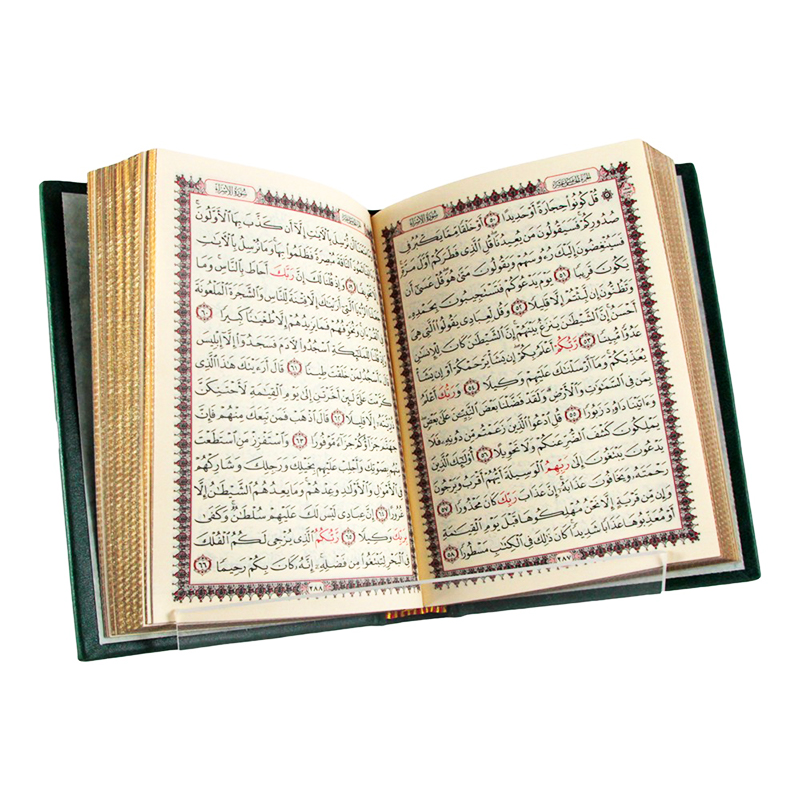 سُورَةُ الإِسْرَاءِ
الجُزْءُ الخَامِسَ عَشَرَ
۞ قُلْ كُونُوا۟ حِجَارَةً أَوْ حَدِيدًا ٥٠ أَوْ خَلْقًا مِّمَّا يَكْبُرُ فِى
صُدُورِكُمْ فَسَيَقُولُونَ مَن يُعِيدُنَا قُلِ ٱلَّذِى فَطَرَكُمْ أَوَّلَ مَرَّةٍ
فَسَيُنْغِضُونَ إِلَيْكَ رُءُوسَهُمْ وَيَقُولُونَ مَتَىٰ هُوَ قُلْ عَسَىٰٓ أَن
يَكُونَ قَرِيبًا ٥١ يَوْمَ يَدْعُوكُمْ فَتَسْتَجِيبُونَ بِحَمْدِهِۦ
وَتَظُنُّونَ إِن لَّبِثْتُمْ إِلَّا قَلِيلًا ٥٢ وَقُل لِّعِبَادِى يَقُولُوا۟ ٱلَّتِى هِىَ
أَحْسَنُ إِنَّ ٱلشَّيْطَٰنَ يَنزَغُ بَيْنَهُمْ إِنَّ ٱلشَّيْطَٰنَ كَانَ لِلْإِنسَٰنِ
عَدُوًّا مُّبِينًا ٥٣ رَّبُّكُمْ أَعْلَمُ بِكُمْ إِن يَشَأْ يَرْحَمْكُمْ أَوْ إِن يَشَأْ
يُعَذِّبْكُمْ وَمَآ أَرْسَلْنَٰكَ عَلَيْهِمْ وَكِيلًا ٥٤ وَرَبُّكَ أَعْلَمُ
بِمَن فِى ٱلسَّمَٰوَٰتِ وَٱلْأَرْضِ وَلَقَدْ فَضَّلْنَا بَعْضَ ٱلنَّبِيِّۦنَ عَلَىٰ بَعْضٍ
وَءَاتَيْنَا دَاوُۥدَ زَبُورًا ٥٥ قُلِ ٱدْعُوا۟ ٱلَّذِينَ زَعَمْتُم مِّن دُونِهِۦ فَلَا
يَمْلِكُونَ كَشْفَ ٱلضُّرِّ عَنكُمْ وَلَا تَحْوِيلًا ٥٦ أُو۟لَٰٓئِكَ ٱلَّذِينَ
يَدْعُونَ يَبْتَغُونَ إِلَىٰ رَبِّهِمُ ٱلْوَسِيلَةَ أَيُّهُمْ أَقْرَبُ وَيَرْجُونَ
رَحْمَتَهُۥ وَيَخَافُونَ عَذَابَهُۥٓ إِنَّ عَذَابَ رَبِّكَ كَانَ مَحْذُورًا ٥٧
وَإِن مِّن قَرْيَةٍ إِلَّا نَحْنُ مُهْلِكُوهَا قَبْلَ يَوْمِ ٱلْقِيَٰمَةِ
أَوْ مُعَذِّبُوهَا عَذَابًا شَدِيدًا كَانَ ذَٰلِكَ فِى ٱلْكِتَٰبِ مَسْطُورًا ٥٨
٢٨٧
سُورَةُ الإِسْرَاءِ
أَن نُّرْسِلَ بِٱلْءَايَٰتِ إِلَّآ أَن كَذَّبَ بِهَا ٱلْأَوَّلُونَ
ٱلنَّاقَةَ مُبْصِرَةً فَظَلَمُوا۟ بِهَا وَمَا نُرْسِلُ بِٱلْءَايَٰتِ
٥٩ وَإِذْ قُلْنَا لَكَ إِنَّ رَبَّكَ أَحَاطَ بِٱلنَّاسِ وَمَا
ٱلَّتِىٓ أَرَيْنَٰكَ إِلَّا فِتْنَةً لِّلنَّاسِ وَٱلشَّجَرَةَ ٱلْمَلْعُونَةَ
وَنُخَوِّفُهُمْ فَمَا يَزِيدُهُمْ إِلَّا طُغْيَٰنًا كَبِيرًا ٦٠
لِلْمَلَٰٓئِكَةِ ٱسْجُدُوا۟ لِءَادَمَ فَسَجَدُوٓا۟ إِلَّآ إِبْلِيسَ
خَلَقْتَ طِينًا ٦١ قَالَ أَرَءَيْتَكَ هَٰذَا ٱلَّذِى
كَرَّمْتَ عَلَىَّ لَئِنْ أَخَّرْتَنِ إِلَىٰ يَوْمِ ٱلْقِيَٰمَةِ لَأَحْتَنِكَنَّ
إِلَّا قَلِيلًا ٦٢ قَالَ ٱذْهَبْ فَمَن تَبِعَكَ مِنْهُمْ فَإِنَّ
جَهَنَّمَ جَزَآؤُكُمْ جَزَآءً مَّوْفُورًا ٦٣ وَٱسْتَفْزِزْ مَنِ ٱسْتَطَعْتَ
مِنْهُم بِصَوْتِكَ وَأَجْلِبْ عَلَيْهِم بِخَيْلِكَ وَرَجِلِكَ وَشَارِكْهُمْ
فِى ٱلْأَمْوَٰلِ وَٱلْأَوْلَٰدِ وَعِدْهُمْ وَمَا يَعِدُهُمُ ٱلشَّيْطَٰنُ إِلَّا
غُرُورًا ٦٤ إِنَّ عِبَادِى لَيْسَ لَكَ عَلَيْهِمْ سُلْطَٰنٌ وَكَفَىٰ
بِرَبِّكَ وَكِيلًا ٦٥ رَّبُّكُمُ ٱلَّذِى يُزْجِى لَكُمُ ٱلْفُلْكَ
فِى ٱلْبَحْرِ لِتَبْتَغُوا۟ مِن فَضْلِهِۦٓ إِنَّهُۥ كَانَ بِكُمْ رَحِيمًا ٦٦
٢٨٨